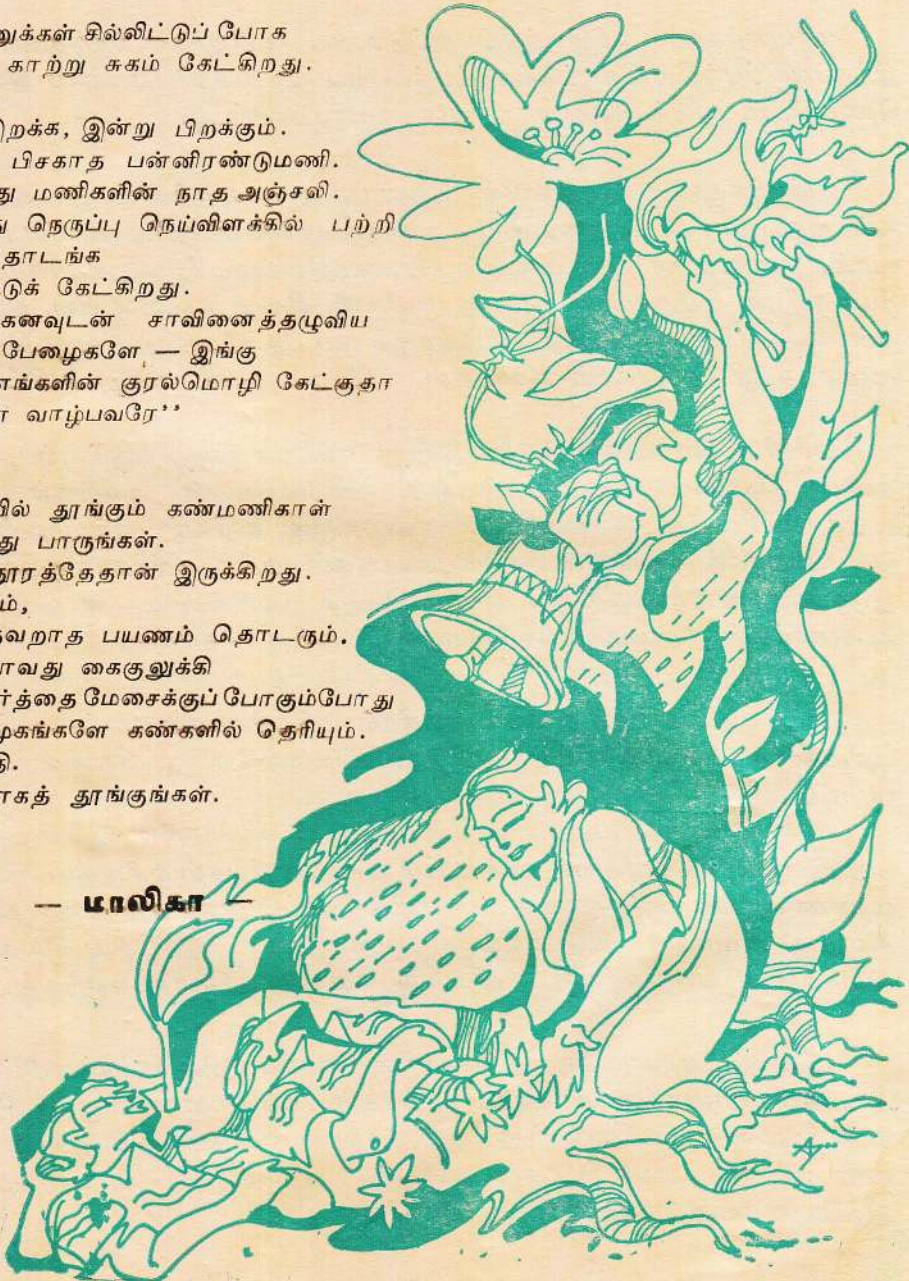 னுக்கள் சில்லிட்டுப் போக
காற்று சுகம் கேட்கிறது.
இறக்க, இன்று பிறக்கும்.
பிசகாத பன்னிரண்டுமணி.
து மணிகளின் நாத அஞ்சலி.
நெருப்பு நெய்விளக்கில் பற்றி
தொடங்க
டுக் கேட்கிறது.
கனவுடன் சாவினைத்தழுவிய
பேழைகளே — இங்கு
எங்களின் குரல்மொழி கேட்குதா
வாழ்பவரே’’
யில் தூங்கும் கண்மணிகாள்
து பாருங்கள்.
தூரத்தேதான் இருக்கிறது.
ம்,
தவறாத பயணம் தொடரும்.
ாவது கைகுலுக்கி
ர்த்தை மேசைக்குப் போகும்போது
முகங்களே கண்களில் தெரியும்.
தி.
ாகத் தூங்குங்கள்.
— மாலிகா —